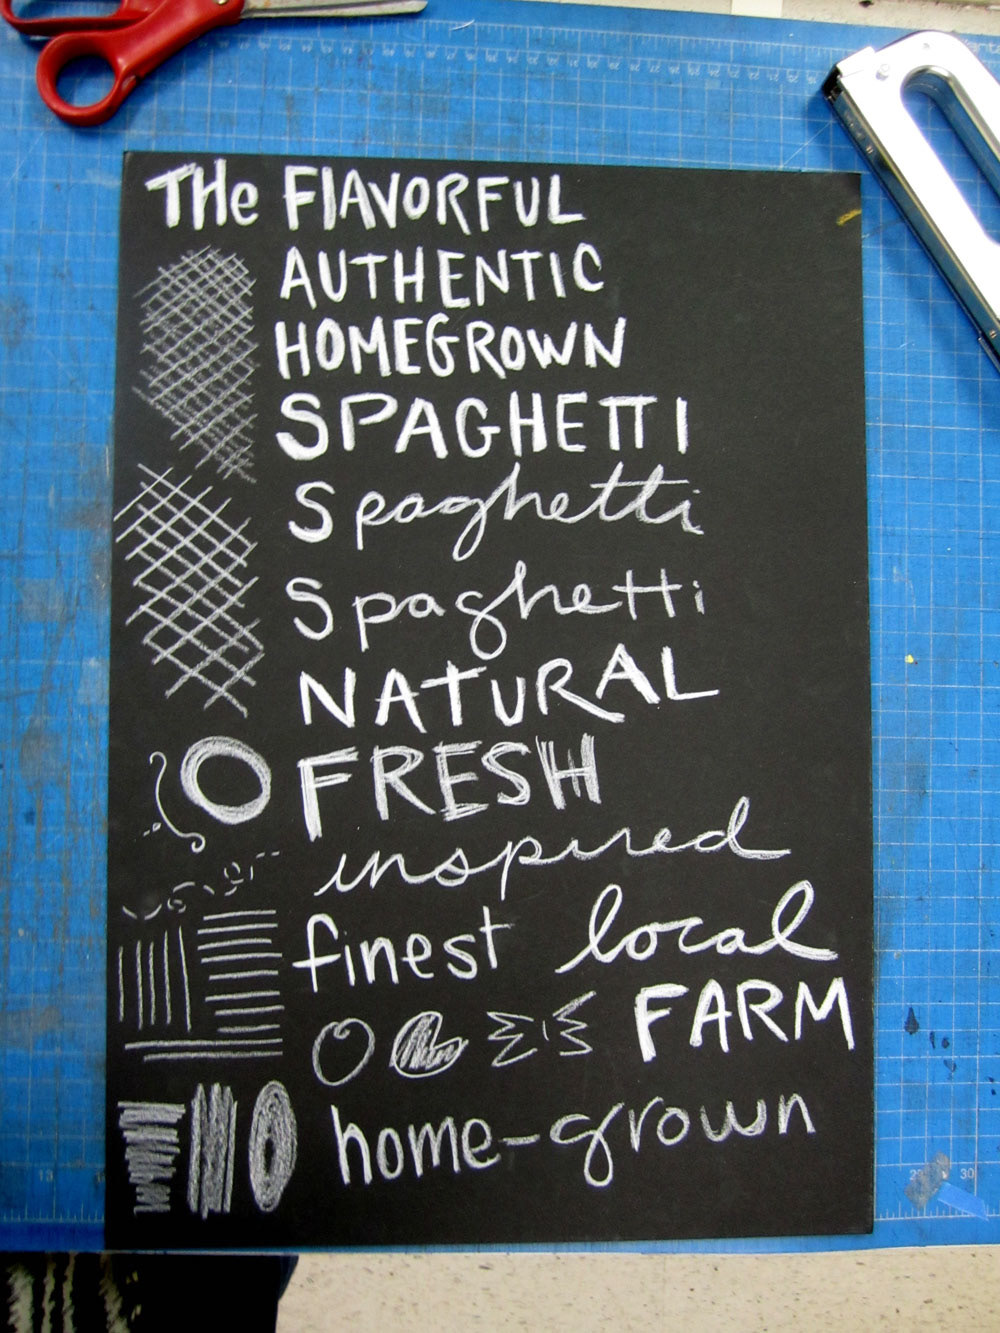 THe FlAVORFUL
AUTHENTIC
HOMEGROWN
SPAGHETTI
Spaghetti
Spaghetti
NATURAL
FRESH
inspired
finest local
FARM
home-grown
13
30